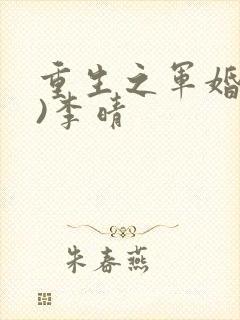 重生之军婚
)李晴
朱春燕